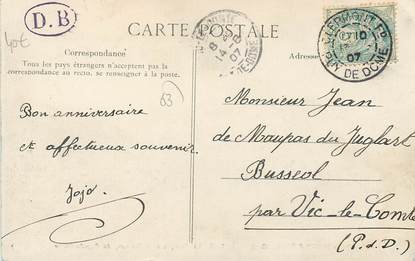 D.B
40€
CARTE POSTALE
Correspondance
Adresse
Tous les pays étrangers n'acceptent pas la
correspondance au recto, se renseigner à la poste.
63
Bon anniversaire
et affectueux souvenir.
Jojo.
10
07
PUY DE DOME
Monsieur Jean
de Maupas du Juglart
Busseol
par Vic-le-Comte
(P.-d-D.)